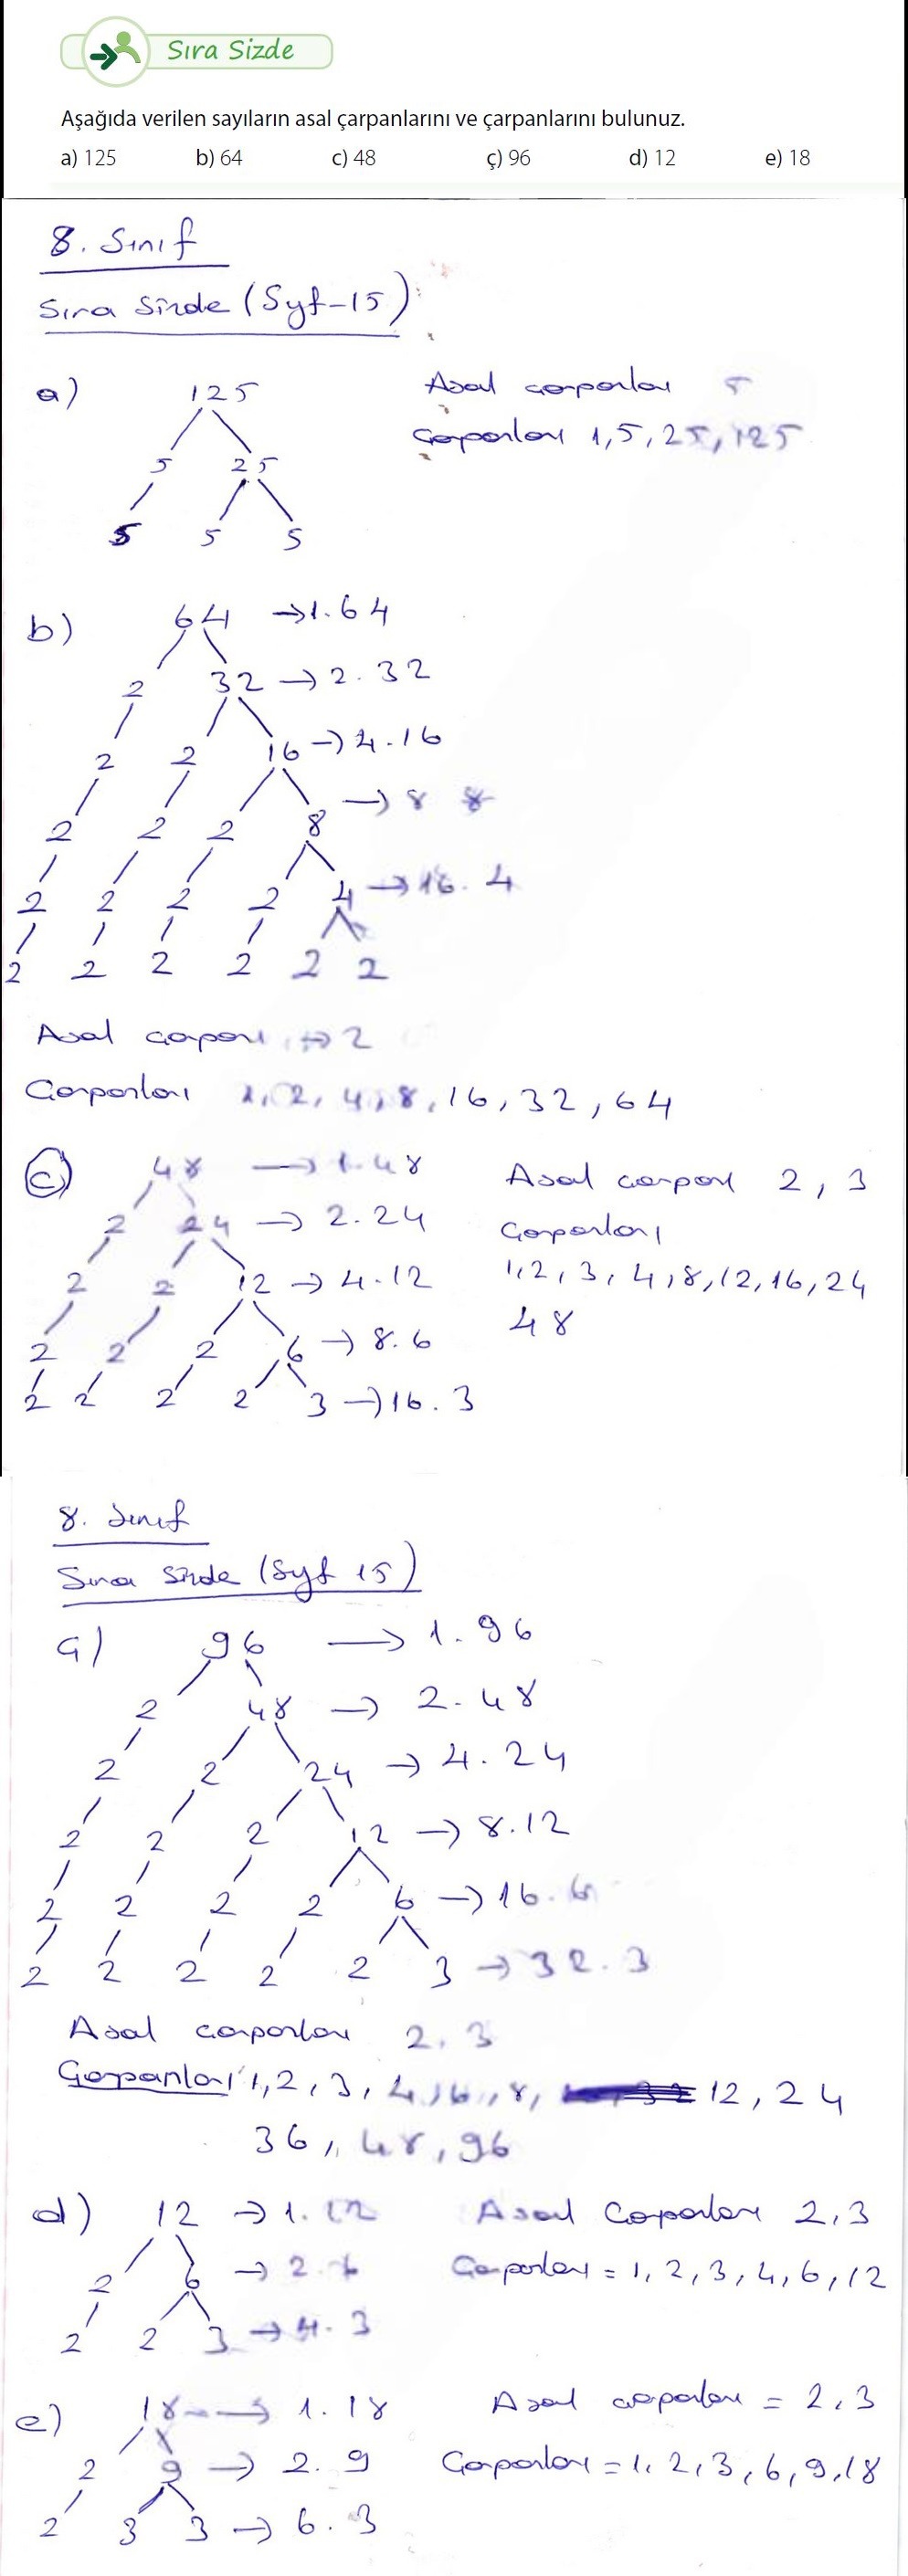 Sıra Sizde
Aşağıda verilen sayıların asal çarpanlarını ve çarpanlarını bulunuz.
a) 125 b) 64 c) 48 ç) 96 d) 12 e) 18
8. Sınıf
Sıra Sizde (Syf-15)
a) 125 Asal çarpanları 5
Çarpanları 1, 5, 25, 125
5 25
5 5 5
b) 64 → 1.64
2 32 → 2.32
2 2 16 → 4.16
→ 8 8
2 2 2 8
2 2 2 2 4 → 16.4
2 2 2 2 2 2
Asal çarpanı → 2
Çarpanları 1, 2, 4, 8, 16, 32, 64
c) 48 → 1.48 Asal çarpanı 2, 3
2 24 → 2.24 Çarpanları
2 2 12 → 4.12 1, 2, 3, 4, 8, 12, 16, 24
48
2 2 2 6 → 8.6
2 2 2 2 3 → 16.3
8. Sınıf
Sıra Sizde (Syf 15)
ç) 96 → 1.96
2 48 → 2.48
2 2 24 → 4.24
2 2 2 12 → 8.12
2 2 2 2 6 → 16.6
2 2 2 2 2 3 → 32.3
Asal çarpanları 2, 3
Çarpanları 1, 2, 3, 4, 6, 8, 12, 24
36, 48, 96
d) 12 → 1.12 Asal Çarpanları 2, 3
2 6 → 2.6 Çarpanları = 1, 2, 3, 4, 6, 12
2 2 3 → 4.3
e) 18 → 1.18 Asal çarpanları = 2, 3
2 9 → 2.9 Çarpanları = 1, 2, 3, 6, 9, 18
2 3 3 → 6.3